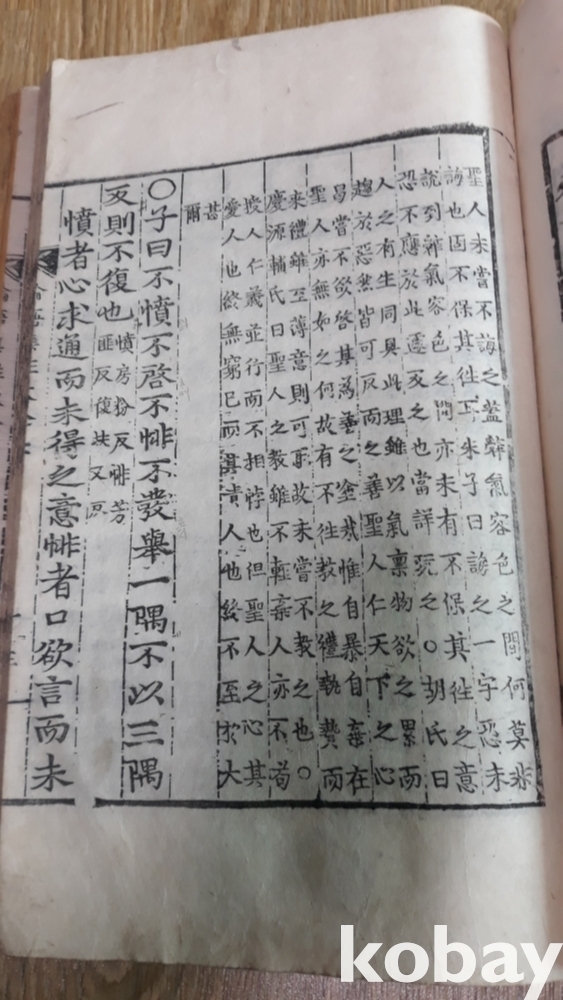 聖人未嘗不誨之蓋辭氣容色之間何莫非
誨也固不保其往耳朱子曰誨之一字恐未
說到辭氣容色之間亦未有不保其往之意
恐不應於此遽及之也當詳玩之○胡氏曰
人之有生同具此理雖以氣稟物欲之累而
趨於惡然皆可反而之善聖人仁天下之心
曷嘗不欲啓其爲善之塗哉惟自暴自棄在
聖人亦無如之何故有不往教之禮執贄而
來禮雖至薄意則可取故未嘗不教之也○
慶源輔氏曰聖人之教雖不輕棄人亦不苟
授人仁義並行而不相悖也但聖人之心其
愛人也欲無窮已而其責人也終不至於大
甚
爾
○子曰不憤不啓不悱不發舉一隅不以三隅
反則不復也
憤房粉反悱芳
匪反復扶又反
憤者心求通而未得之意悱者口欲言而未
kobay